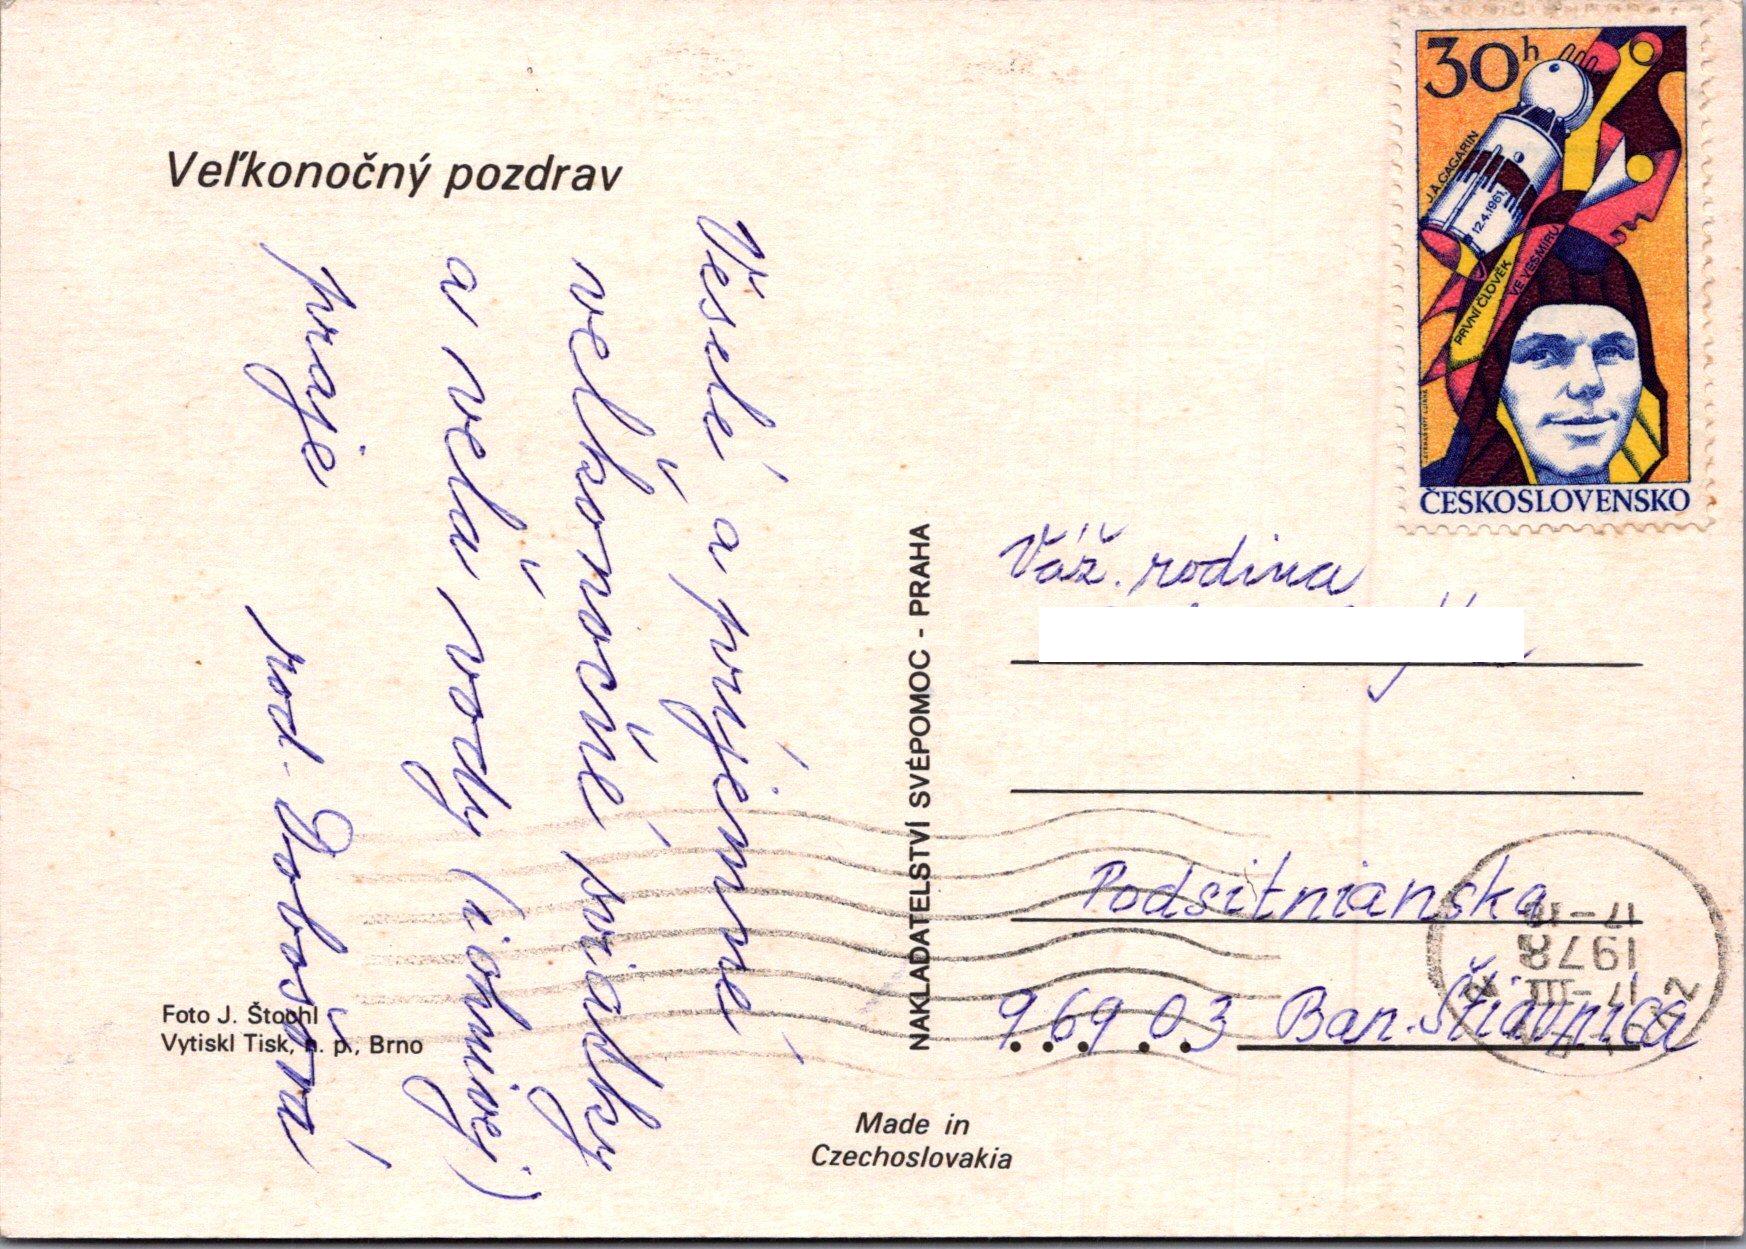 Veľkonočný pozdrav
Veselé a príjemné
veľkonočné sviatky
a veľa vody (i ohnivej)
praje
rod.
Foto J. Štochl
Vytiskl Tisk, n. p., Brno
NAKLADATELSTVÍ SVÉPOMOC - PRAHA
Made in
Czechoslovakia
30h
J.A.GAGARIN
12.4.1961
PRVNÍ ČLOVĚK
VE VESMÍRU
ČESKOSLOVENSKO
Váž. rodina
Podsitnianska
969 03 Ban. Štiavnica
17-III
1978